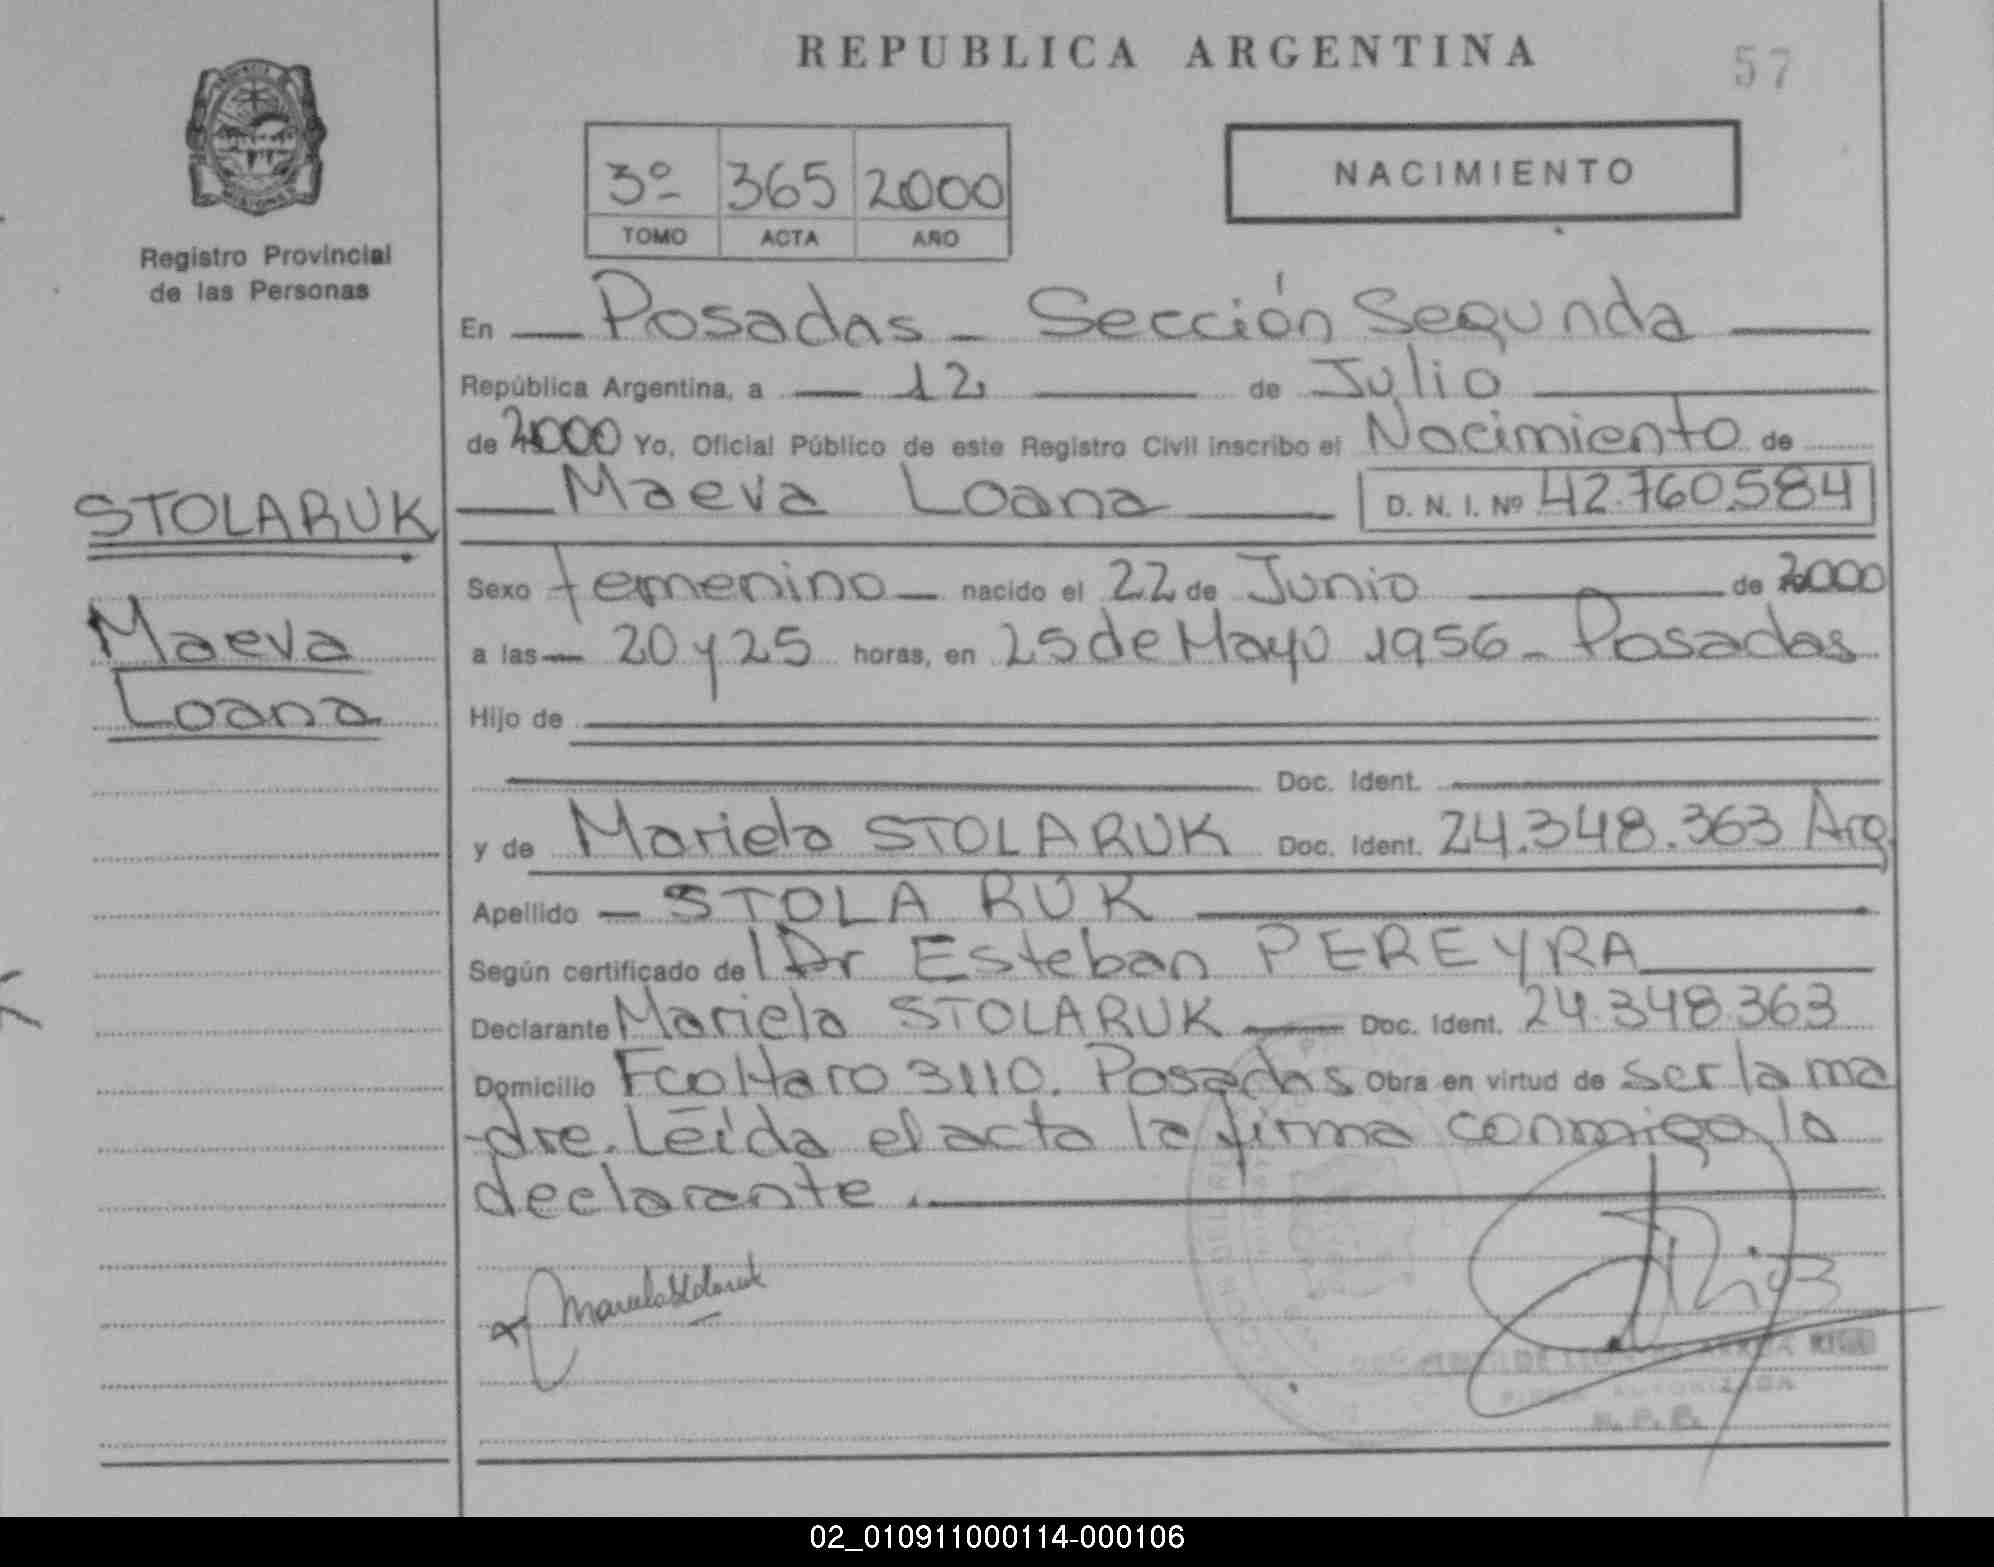 REPUBLICA ARGENTINA
57
NACIMIENTO
3º 365 2000
TOMO ACTA AÑO
Registro Provincial
de las Personas
En Posadas - Sección Segunda
República Argentina, a 12 de Julio
de 2000 Yo, Oficial Público de este Registro Civil inscribo el Nacimiento de
Maeva Loana D. N. I. Nº 42.760.584
STOLARUK
Maeva
Loana
Sexo femenino nacido el 22 de Junio de 2000
a las 20 y 25 horas, en 25 de Mayo 1956 - Posadas
Hijo de
Doc. Ident.
y de Mariela STOLARUK Doc. Ident. 24.348.363 Arg
Apellido STOLARUK
Según certificado de Dr Esteban PEREYRA
Declarante Mariela STOLARUK Doc. Ident. 24.348.363
Domicilio Fco Haro 3110. Posadas Obra en virtud de ser la ma
dre. Leída el acta la firma conmigo la
declarante.
Mariela Stolaruk
FIRMA AUTORIZADA
02_010911000114-000106